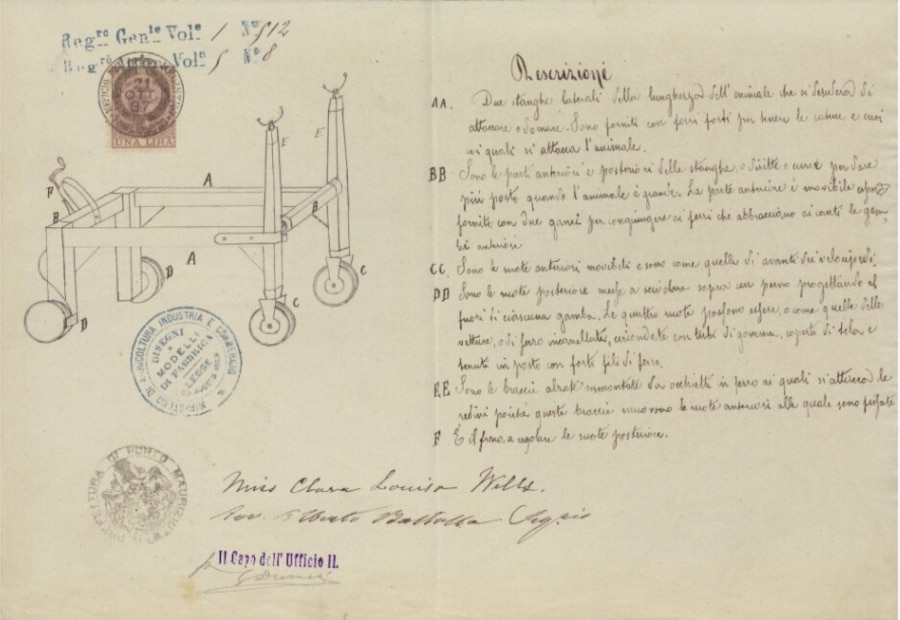 Regro Genle Vole 1 No 512
Regro Vole 5 No 8
31
OTT
97
UNA LIRA
A
A
B
B
C
C
D
D
E
E
F
MINISTERO DI AGRICOLTURA INDUSTRIA E COMMERCIO
DISEGNI
E
MODELLI
DI FABBRICA
LEGGE
PREFETTURA DI PORTO MAURIZIO
Descrizione
AA. Due stanghe laterali della lunghezza dell'animale che si desidera di
attaccare o domare. Sono forniti con ferri forti per tenere le catene e cuoi
coi quali si attacca l'animale.
BB Sono le parti anteriori e posteriori delle stanghe, o diritte o curve per dare
più posto quando l'animale è grande. La parte anteriore è movibile
fornito con due ganci per congiungere ai ferri che abbracciano le gam-
bé anteriore
CC. Sono le ruote anteriori movibili e sono come quelle di avanti dei velocipedi.
DD Sono le ruote posteriore messe a sopra un perno progettando al
fuori di ciascuna gamba. Le quattro ruote possono essere, o come quelle delle
vetture, o di ferro incanallate, circondate con tubi di gomma, coperti di tela e
tenuti in posto con forte fili di ferro.
EE Sono le braccie alzate sormontate da occhialli in ferro ai quali si attacca le
redini poiche queste braccie muovono le ruote anteriori alle quali sono fissate
F È il freno a regolare le ruote posteriore.
Miss Clara Louisa Wells.
Avv. Alberto Battolla
Il Capo dell'Ufficio II.